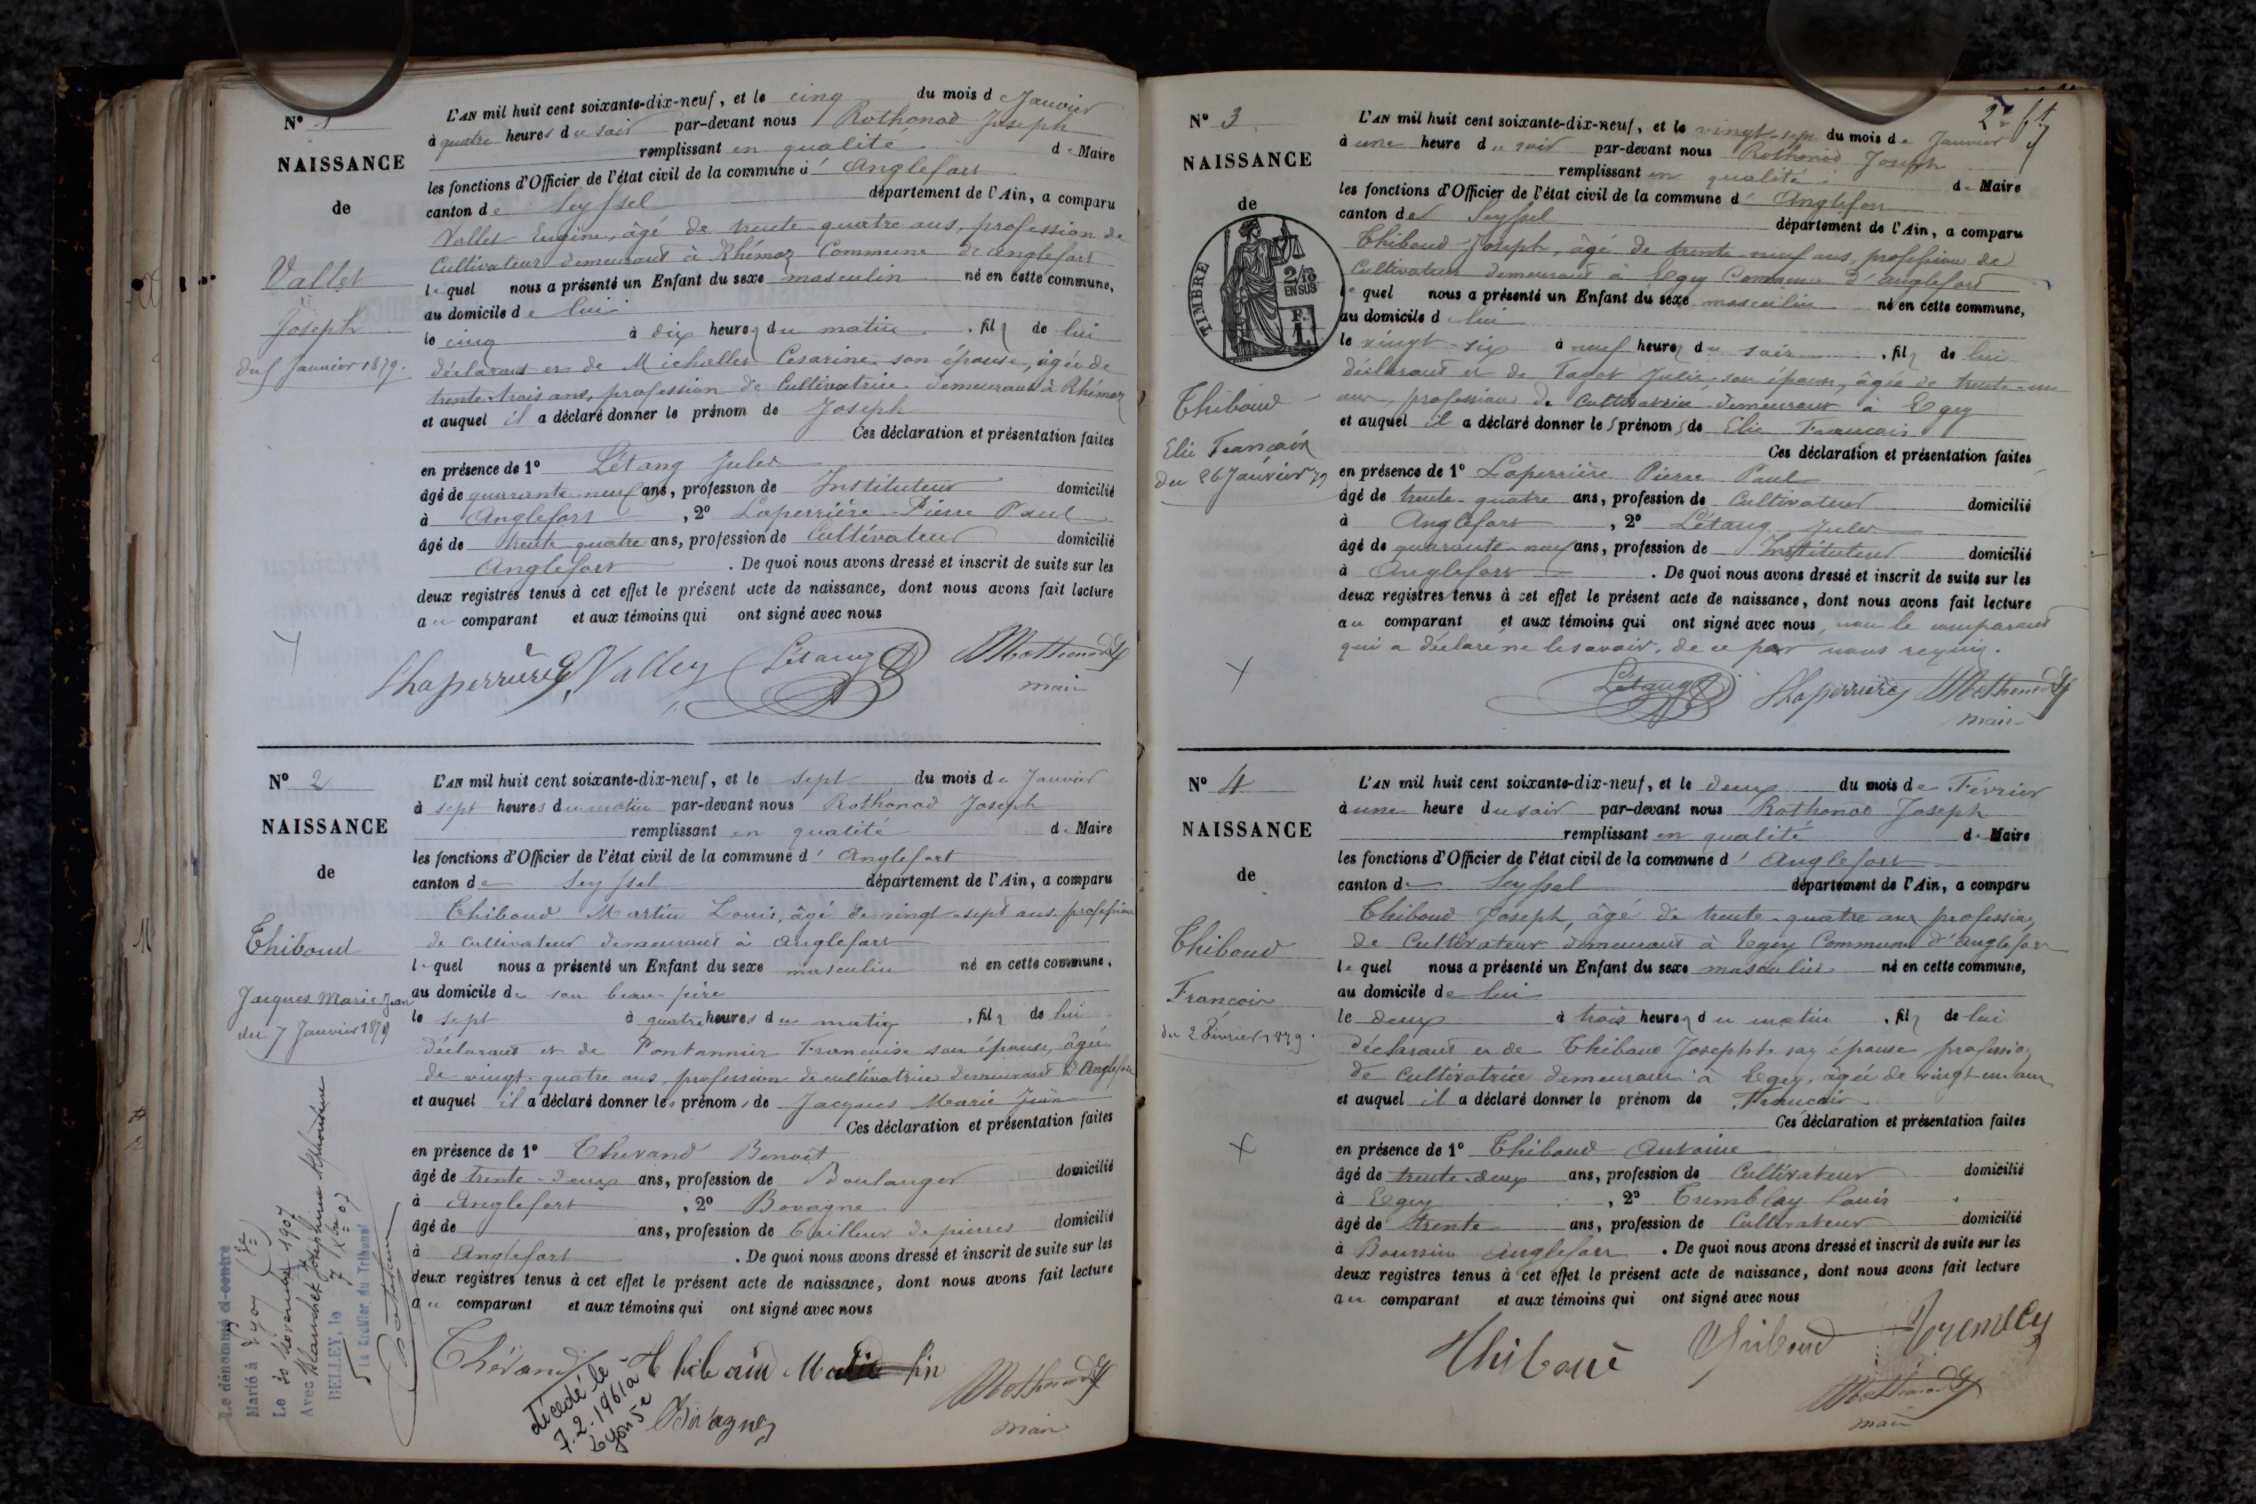 N° 1
NAISSANCE
de
Vallet
Joseph
du 5 Janvier 1879.
L'AN mil huit cent soixante-dix-neuf, et le cinq du mois d Janvier
à quatre heures du soir par-devant nous Rothonod Joseph
remplissant en qualité de Maire
les fonctions d'Officier de l'état civil de la commune d' Anglefort
canton de Seyssel département de l'Ain, a comparu
Vallet Eugène, âgé de trente-quatre ans, profession de
Cultivateur demeurant à Rhémoz Commune de Anglefort
lequel nous a présenté un Enfant du sexe masculin né en cette commune,
au domicile de lui
le cinq à dix heures du matin, fils de lui
déclarant et de Michallet Césarine son épouse, âgée de
trente-trois ans, profession de Cultivatrice demeurant à Rhémoz
et auquel il a déclaré donner le prénom de Joseph
Ces déclaration et présentation faites
en présence de 1° Létang Jules
âgé de quarante-neuf ans, profession de Instituteur domicilié
à Anglefort, 2° Laperrière Pierre Paul
âgé de trente-quatre ans, profession de Cultivateur domicilié
Anglefort. De quoi nous avons dressé et inscrit de suite sur les
deux registres tenus à cet effet le présent acte de naissance, dont nous avons fait lecture
au comparant et aux témoins qui ont signé avec nous
Laperrière Vallet Létang Rothonod
maire
N° 2
NAISSANCE
de
Thiboud
Jacques Marie Jean
du 7 Janvier 1879
L'AN mil huit cent soixante-dix-neuf, et le sept du mois de Janvier
à sept heures du matin par-devant nous Rothonod Joseph
remplissant en qualité de Maire
les fonctions d'Officier de l'état civil de la commune d' Anglefort
canton de Seyssel département de l'Ain, a comparu
Thiboud Martin Louis, âgé de vingt-sept ans profession
de cultivateur demeurant à Anglefort
lequel nous a présenté un Enfant du sexe masculin né en cette commune,
au domicile de son beau-père
le sept à quatre heures du matin, fils de lui
déclarant et de Fontannier Françoise son épouse, âgée
de vingt-quatre ans, profession de cultivatrice demeurant à Anglefort
et auquel il a déclaré donner les prénoms de Jacques Marie Jean
Ces déclaration et présentation faites
en présence de 1° Thévand Benoit
âgé de trente-deux ans, profession de Boulanger domicilié
à Anglefort, 2° Bovagne
âgé de ans, profession de Tailleur de pierres domicilié
à Anglefort. De quoi nous avons dressé et inscrit de suite sur les
deux registres tenus à cet effet le présent acte de naissance, dont nous avons fait lecture
au comparant et aux témoins qui ont signé avec nous
Thévand Thibaud Martin Rothonod
Bovagne maire
décédé le
7.2.1961 à
Lyon 5e
Le dénommé ci-contre
Marié à Lyon
Le 30 novembre 1907
Avec Blanchet Joséphine
BELLEY, le 7 Xbre 07
Le Greffier du Tribunal
N° 3
NAISSANCE
de
TIMBRE
2/10
EN SUS
F.
1
Thiboud
Elie François
du 26 Janvier 79
L'AN mil huit cent soixante-dix-neuf, et le vingt-sept du mois de Janvier
à une heure du soir par-devant nous Rothonod Joseph
remplissant en qualité de Maire
les fonctions d'Officier de l'état civil de la commune d' Anglefort
canton de Seyssel département de l'Ain, a comparu
Thiboud Joseph, âgé de trente-neuf ans, profession de
Cultivateur demeurant à Egey Commune d'Anglefort
lequel nous a présenté un Enfant du sexe masculin né en cette commune,
au domicile d lui
le vingt-six à neuf heures du soir, fils de lui
déclarant et de Julie, son épouse, âgée de trente-un
ans, profession de Cultivatrice demeurant à Egey
et auquel il a déclaré donner les prénoms de Elie François
Ces déclaration et présentation faites
en présence de 1° Laperrière Pierre Paul
âgé de trente-quatre ans, profession de Cultivateur domicilié
à Anglefort, 2° Létang Jules
âgé de quarante-neuf ans, profession de Instituteur domicilié
à Anglefort. De quoi nous avons dressé et inscrit de suite sur les
deux registres tenus à cet effet le présent acte de naissance, dont nous avons fait lecture
au comparant et aux témoins qui ont signé avec nous, non le comparant
qui a déclaré ne le savoir, de ce par nous requis.
Létang Laperrière Rothonod
maire
N° 4
NAISSANCE
de
Thiboud
François
du 2 Février 1879.
L'AN mil huit cent soixante-dix-neuf, et le deux du mois de Février
à une heure du soir par-devant nous Rothonod Joseph
remplissant en qualité de Maire
les fonctions d'Officier de l'état civil de la commune d' Anglefort
canton de Seyssel département de l'Ain, a comparu
Thiboud Joseph, âgé de trente-quatre ans profession
de Cultivateur demeurant à Egey Commune d'Anglefort
lequel nous a présenté un Enfant du sexe masculin né en cette commune,
au domicile de lui
le deux à trois heures du matin, fils de lui
déclarant et de Thiboud Josephte son épouse profession
de cultivatrice demeurant à Egey, âgée de vingt-un ans
et auquel il a déclaré donner le prénom de François
Ces déclaration et présentation faites
en présence de 1° Thiboud Antoine
âgé de trente-deux ans, profession de Cultivateur domicilié
à Egey, 2° Tremblay Louis
âgé de trente ans, profession de Cultivateur domicilié
à Boursin Anglefort. De quoi nous avons dressé et inscrit de suite sur les
deux registres tenus à cet effet le présent acte de naissance, dont nous avons fait lecture
au comparant et aux témoins qui ont signé avec nous
Thiboud Thiboud Tremblay
Rothonod
maire